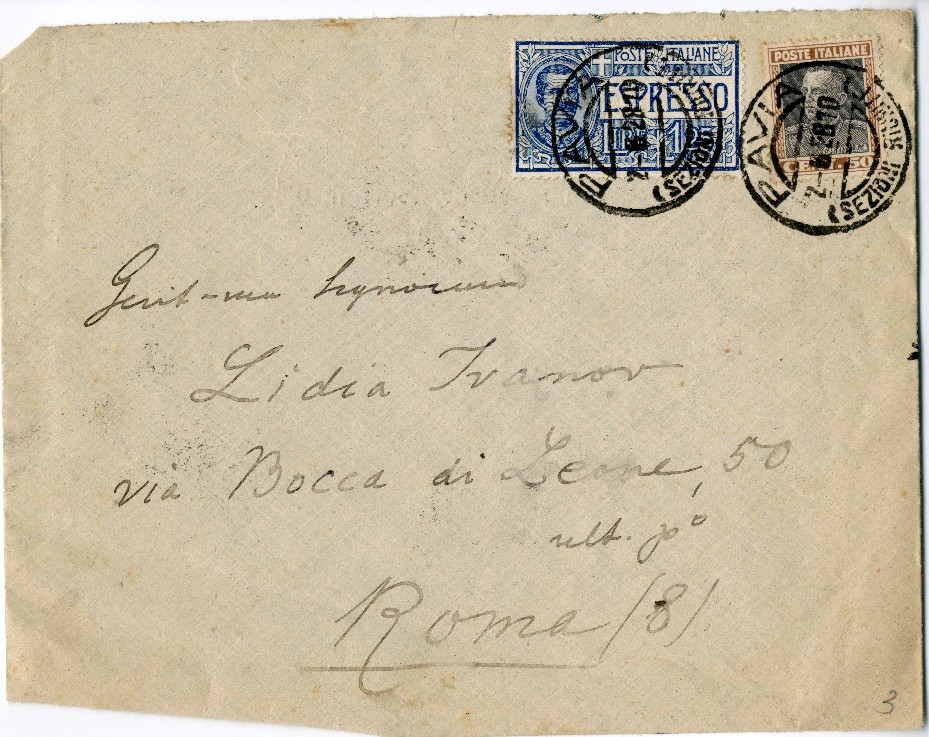 POSTE ITALIANE
ESPRESSO
POSTE ITALIANE
CENT. 50
PAVIA
2-6 28 10
(SEZIONI
PAVIA
2-6 28 10
(SEZIONI RIUNITE)
Gent-ma Signorina
Lidia Ivanov
via Bocca di Leone, 50
ult. pº
Roma (8)
3